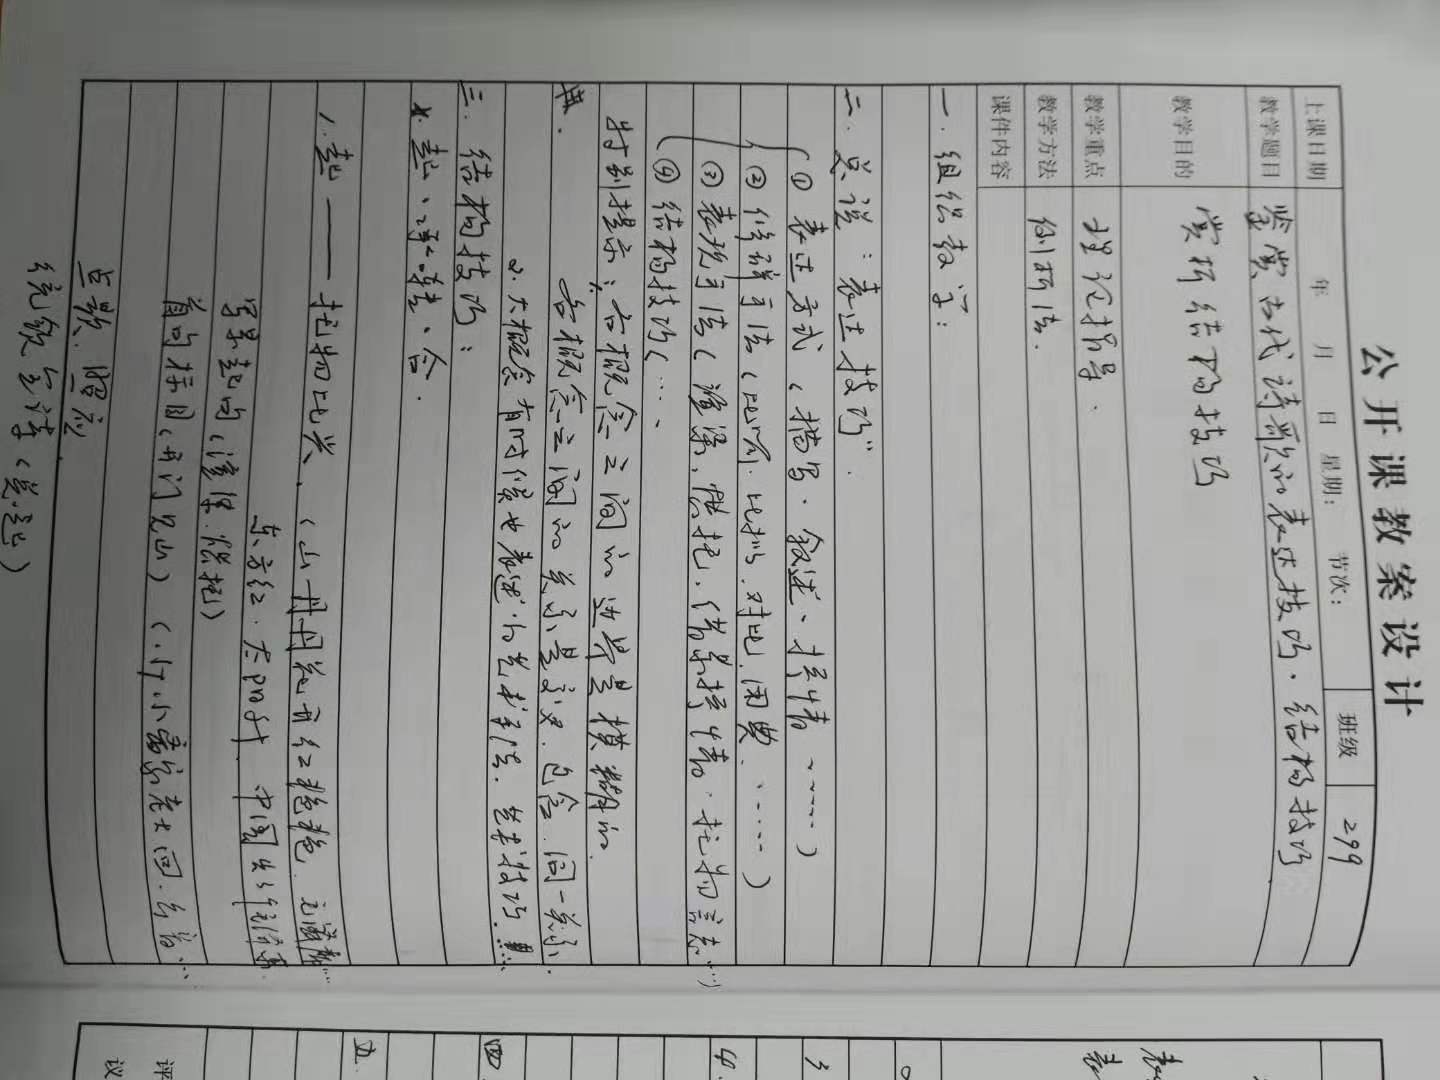 公开课教案设计
上课日期 年 月 日 星期: 节次: 班级 299
教学题目 鉴赏古代诗歌的表达技巧·结构技巧
教学目的 赏析结构技巧
教学重点 理论指导.
教学方法 例析法.
课件内容
一.组织教学:
二.总说:表达技巧.
① 表达方式(描写.叙述、抒情……)
② 修辞手法(比喻.比拟.对比.用典……)
③ 表现手法(渲染,烘托,借景抒情.托物言志…)
④ 结构技巧(….
特别提示:各概念之间的边界是模糊的.
各概念之间的关系是交叉.包含.同一关系.
2.大概念有时候也表述为艺术手法.艺术技巧…
三.结构技巧:
起、承、转、合.
1.起——托物比兴.(山丹丹花开红艳艳.
东方红.太阳升 中国出了个
写景起句(渲染.烘托)
首句标目(开门见山)(少小离家老大回.
点题、照应
统领全诗(总起)
评
议
四.
五.
4.
3